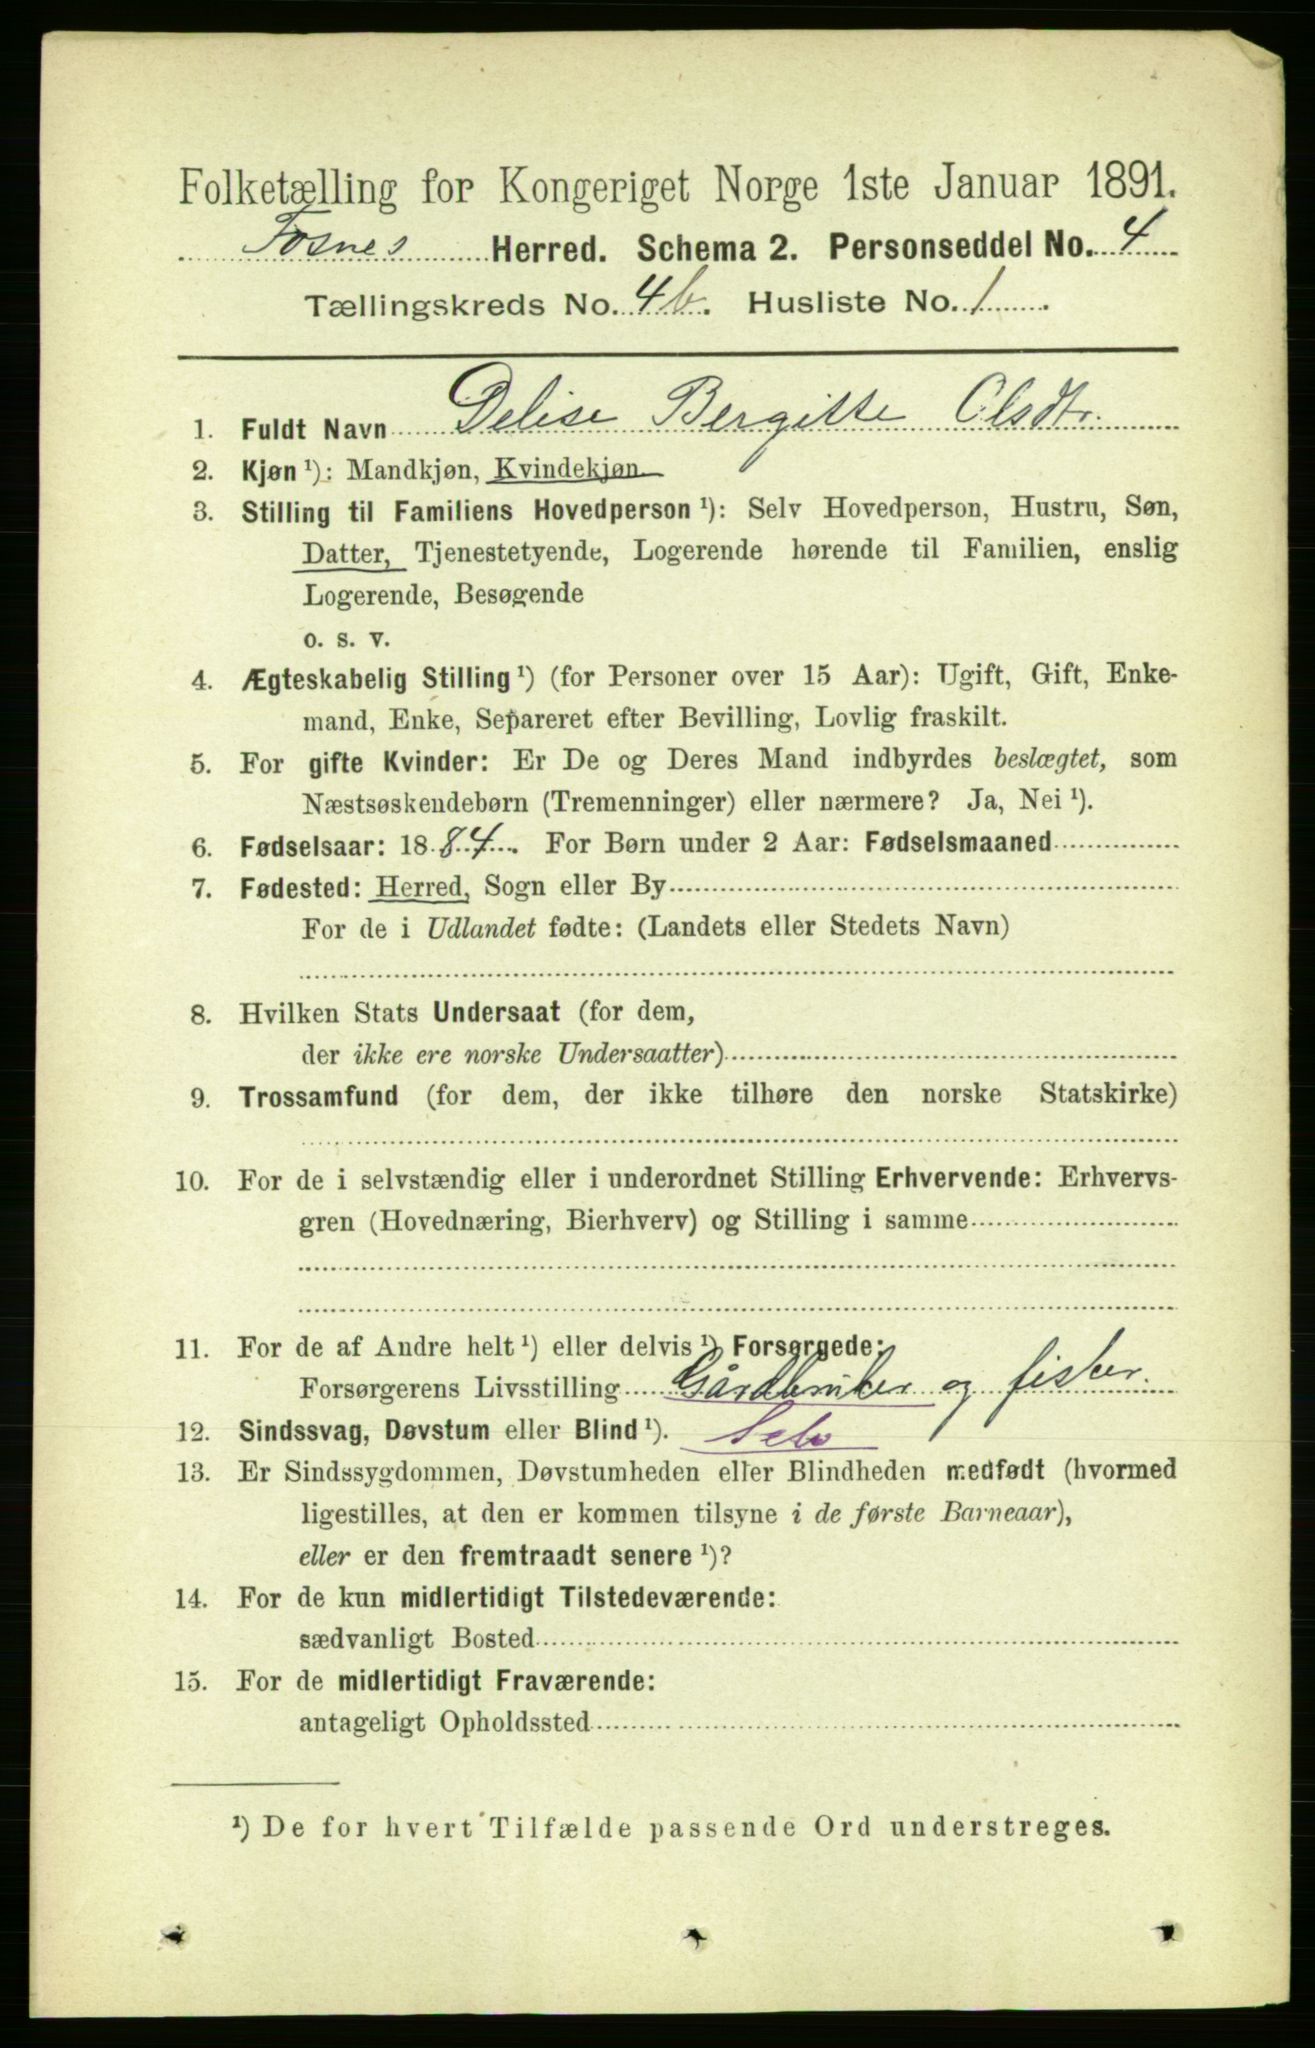 Folketælling for Kongeriget Norge 1ste Januar 1891.
Fosnes Herred. Schema 2. Personseddel No. 4
Tællingskreds No. 4b. Husliste No. 1
1. Fuldt Navn Delise Bergitte Olsdtr.
2. Kjøn ¹): Mandkjøn, Kvindekjøn.
3. Stilling til Familiens Hovedperson ¹): Selv Hovedperson, Hustru, Søn,
Datter, Tjenestetyende, Logerende hørende til Familien, enslig
Logerende, Besøgende
o. s. v.
4. Ægteskabelig Stilling ¹) (for Personer over 15 Aar): Ugift, Gift, Enke-
mand, Enke, Separeret efter Bevilling, Lovlig fraskilt.
5. For gifte Kvinder: Er De og Deres Mand indbyrdes beslægtet, som
Næstsøskendebørn (Tremenninger) eller nærmere? Ja, Nei ¹).
6. Fødselsaar: 1884. For Børn under 2 Aar: Fødselsmaaned
7. Fødested: Herred, Sogn eller By
For de i Udlandet fødte: (Landets eller Stedets Navn)
8. Hvilken Stats Undersaat (for dem,
der ikke ere norske Undersaatter)
9. Trossamfund (for dem, der ikke tilhøre den norske Statskirke)
10. For de i selvstændig eller i underordnet Stilling Erhvervende: Erhvervs-
gren (Hovednæring, Bierhverv) og Stilling i samme
11. For de af Andre helt ¹) eller delvis ¹) Forsørgede:
Forsørgerens Livsstilling Gårdbruker og fisker.
12. Sindssvag, Døvstum eller Blind ¹). Selv
13. Er Sindssygdommen, Døvstumheden eller Blindheden medfødt (hvormed
ligestilles, at den er kommen tilsyne i de første Barneaar),
eller er den fremtraadt senere ¹)?
14. For de kun midlertidigt Tilstedeværende:
sædvanligt Bosted
15. For de midlertidigt Fraværende:
antageligt Opholdssted
¹) De for hvert Tilfælde passende Ord understreges.